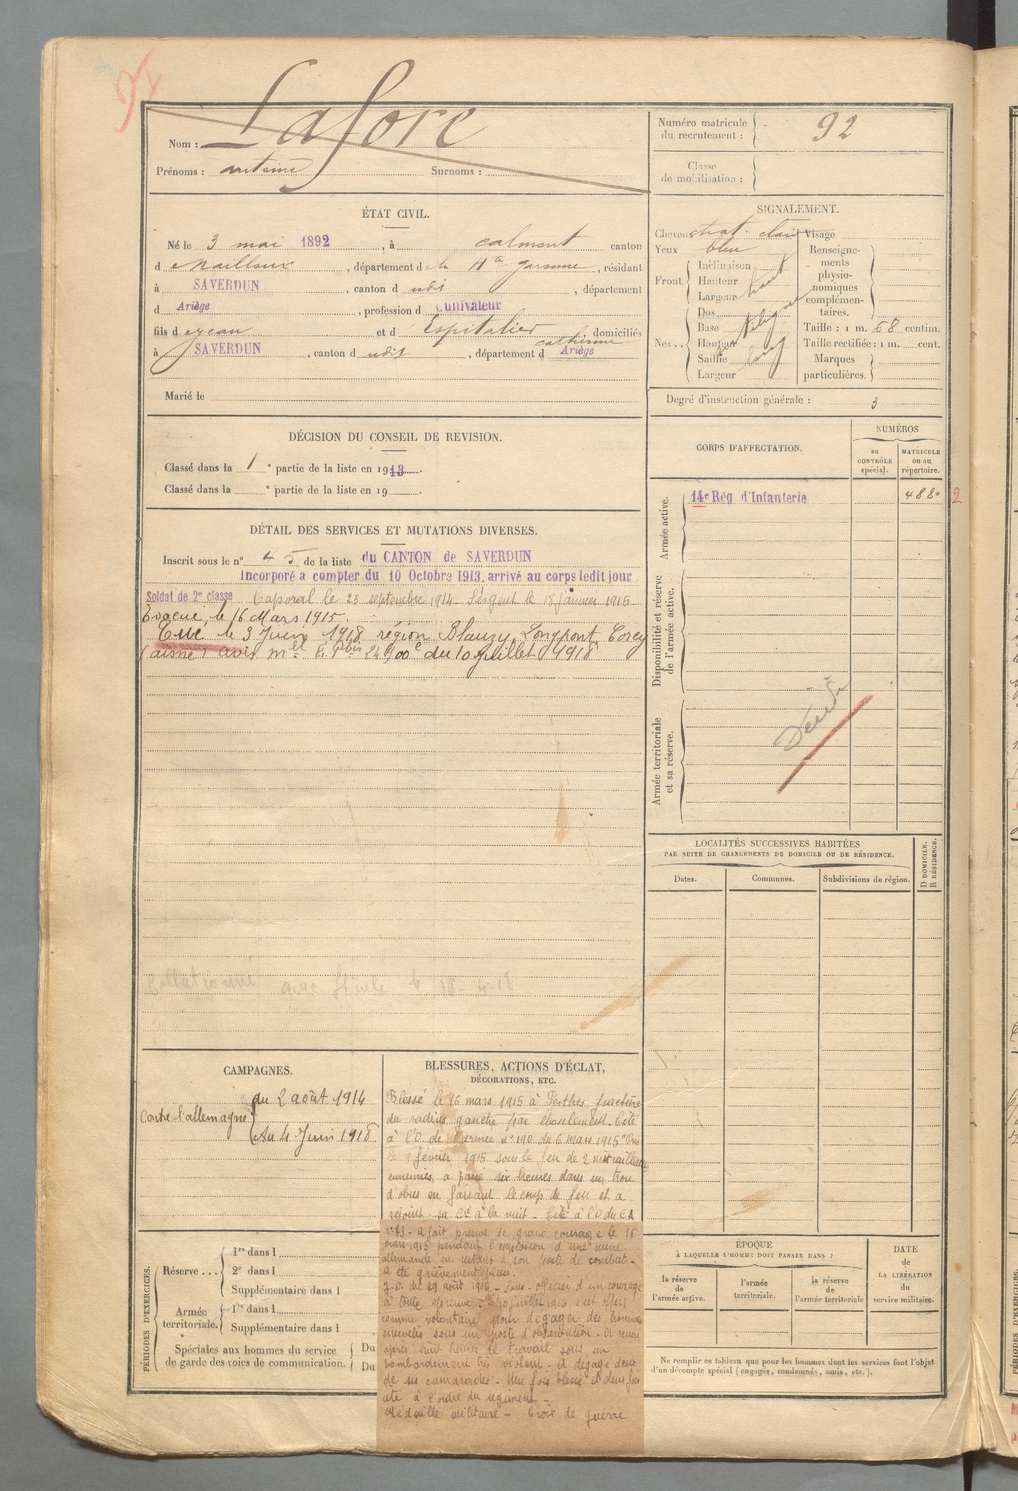 92
Nom : Lafore
Prénoms : antoine Surnoms :
Numéro matricule du recrutement : 92
Classe de mobilisation :
ÉTAT CIVIL.
Né le 3 mai 1892, à calmont canton
d nailloux, département de la Hte garonne, résidant
à SAVERDUN, canton d udit, département
d Ariège, profession d Cultivateur
fils d jean et d Espitalier catherine domiciliés
à SAVERDUN, canton d udit, département d Ariège
Marié le
SIGNALEMENT.
Cheveux chat. clair Visage
Yeux bleu
Front. Inclinaison
Hauteur haut
Largeur
Nez.. Dos
Base
Hauteur
Saillie long
Largeur
Renseignements physionomiques complémentaires.
Taille : 1 m. 68 centim.
Taille rectifiée : 1 m. cent.
Marques particulières.
Degré d'instruction générale : 3
DÉCISION DU CONSEIL DE REVISION.
Classé dans la 1e partie de la liste en 1913.
Classé dans la e partie de la liste en 19 .
CORPS D'AFFECTATION.
NUMÉROS
au CONTRÔLE spécial.
MATRICULE ou au répertoire.
Armée active.
14e Rég d'Infanterie 4880 2
Disponibilité et réserve de l'armée active.
Armée territoriale et sa réserve.
DÉTAIL DES SERVICES ET MUTATIONS DIVERSES.
Inscrit sous le n° 45 de la liste du CANTON de SAVERDUN
Incorporé a compter du 10 Octobre 1913, arrivé au corps ledit jour
Soldat de 2e classe Caporal le 25 septembre 1914 - Sergent le 18 janvier 1915
Evacué, le 16 Mars 1915.
Tué le 3 Juin 1918 région Blanzy, Longpont, Corcy
(aisne) avis du 10 juillet 1918
Collationné avec
LOCALITÉS SUCCESSIVES HABITÉES
PAR SUITE DE CHANGEMENTS DE DOMICILE OU DE RÉSIDENCE.
Dates. Communes. Subdivisions de région. D DOMICILE. R RÉSIDENCE.
CAMPAGNES.
Contre l'allemagne du 2 août 1914
Au 4 Juin 1918.
BLESSURES, ACTIONS D'ÉCLAT,
DÉCORATIONS, ETC.
Blessé le 16 mars 1915 à Perthes, fracture
du radius gauche par éboulement. Cité
à l'O. de l'armée n° 190 du 6 mars 1915
le 9 février 1915 sous le feu de 2 mitrailleuses
ennemies, a passé six heures dans un trou
d'obus en faisant le coup de feu et a
rejoint sa Cie à la nuit - Cité à l'O du CA
n° 83 - a fait preuve de grand courage le 16
mars 1915 pendant l'explosion d'une mine
allemande en restant à son poste de combat -
a été grièvement blessé.
J.O. du 29 août 1916 - Sous-officier d'un courage
à toute épreuve - s'est offert
comme volontaire pour dégager des hommes
ensevelis sous un poste d'observation - a réussi
après huit heures de travail sous un
bombardement très violent - à dégager deux
de ses camarades - Une fois blessé et deux fois
cité à l'ordre du régiment -
Médaille militaire - Croix de guerre
PÉRIODES D'EXERCICES.
Réserve... 1re dans l
2e dans l
Supplémentaire dans l
Armée territoriale. 1re dans l
Supplémentaire dans l
Spéciales aux hommes du service de garde des voies de communication. Du
Du
ÉPOQUE
À LAQUELLE L'HOMME DOIT PASSER DANS :
la réserve de l'armée active.
l'armée territoriale.
la réserve de l'armée territoriale
DATE de LA LIBÉRATION du service militaire.
Ne remplir ce tableau que pour les hommes dont les services font l'objet
d'un décompte spécial (engagés, condamnés, omis, etc.).